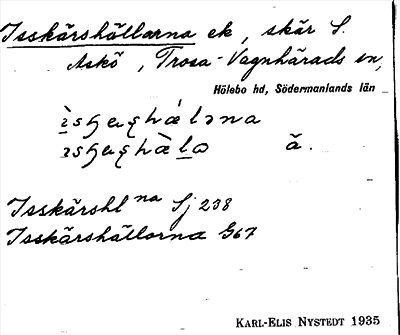 Isskärshällarna ek, skär S.
Askö, Trosa-Vagnhärads sn,
Hölebo hd, Södermanlands län
ă.
Isskärshl na Sj 238
Isskärshällorna G67
KARL-ELIS NYSTEDT 1935